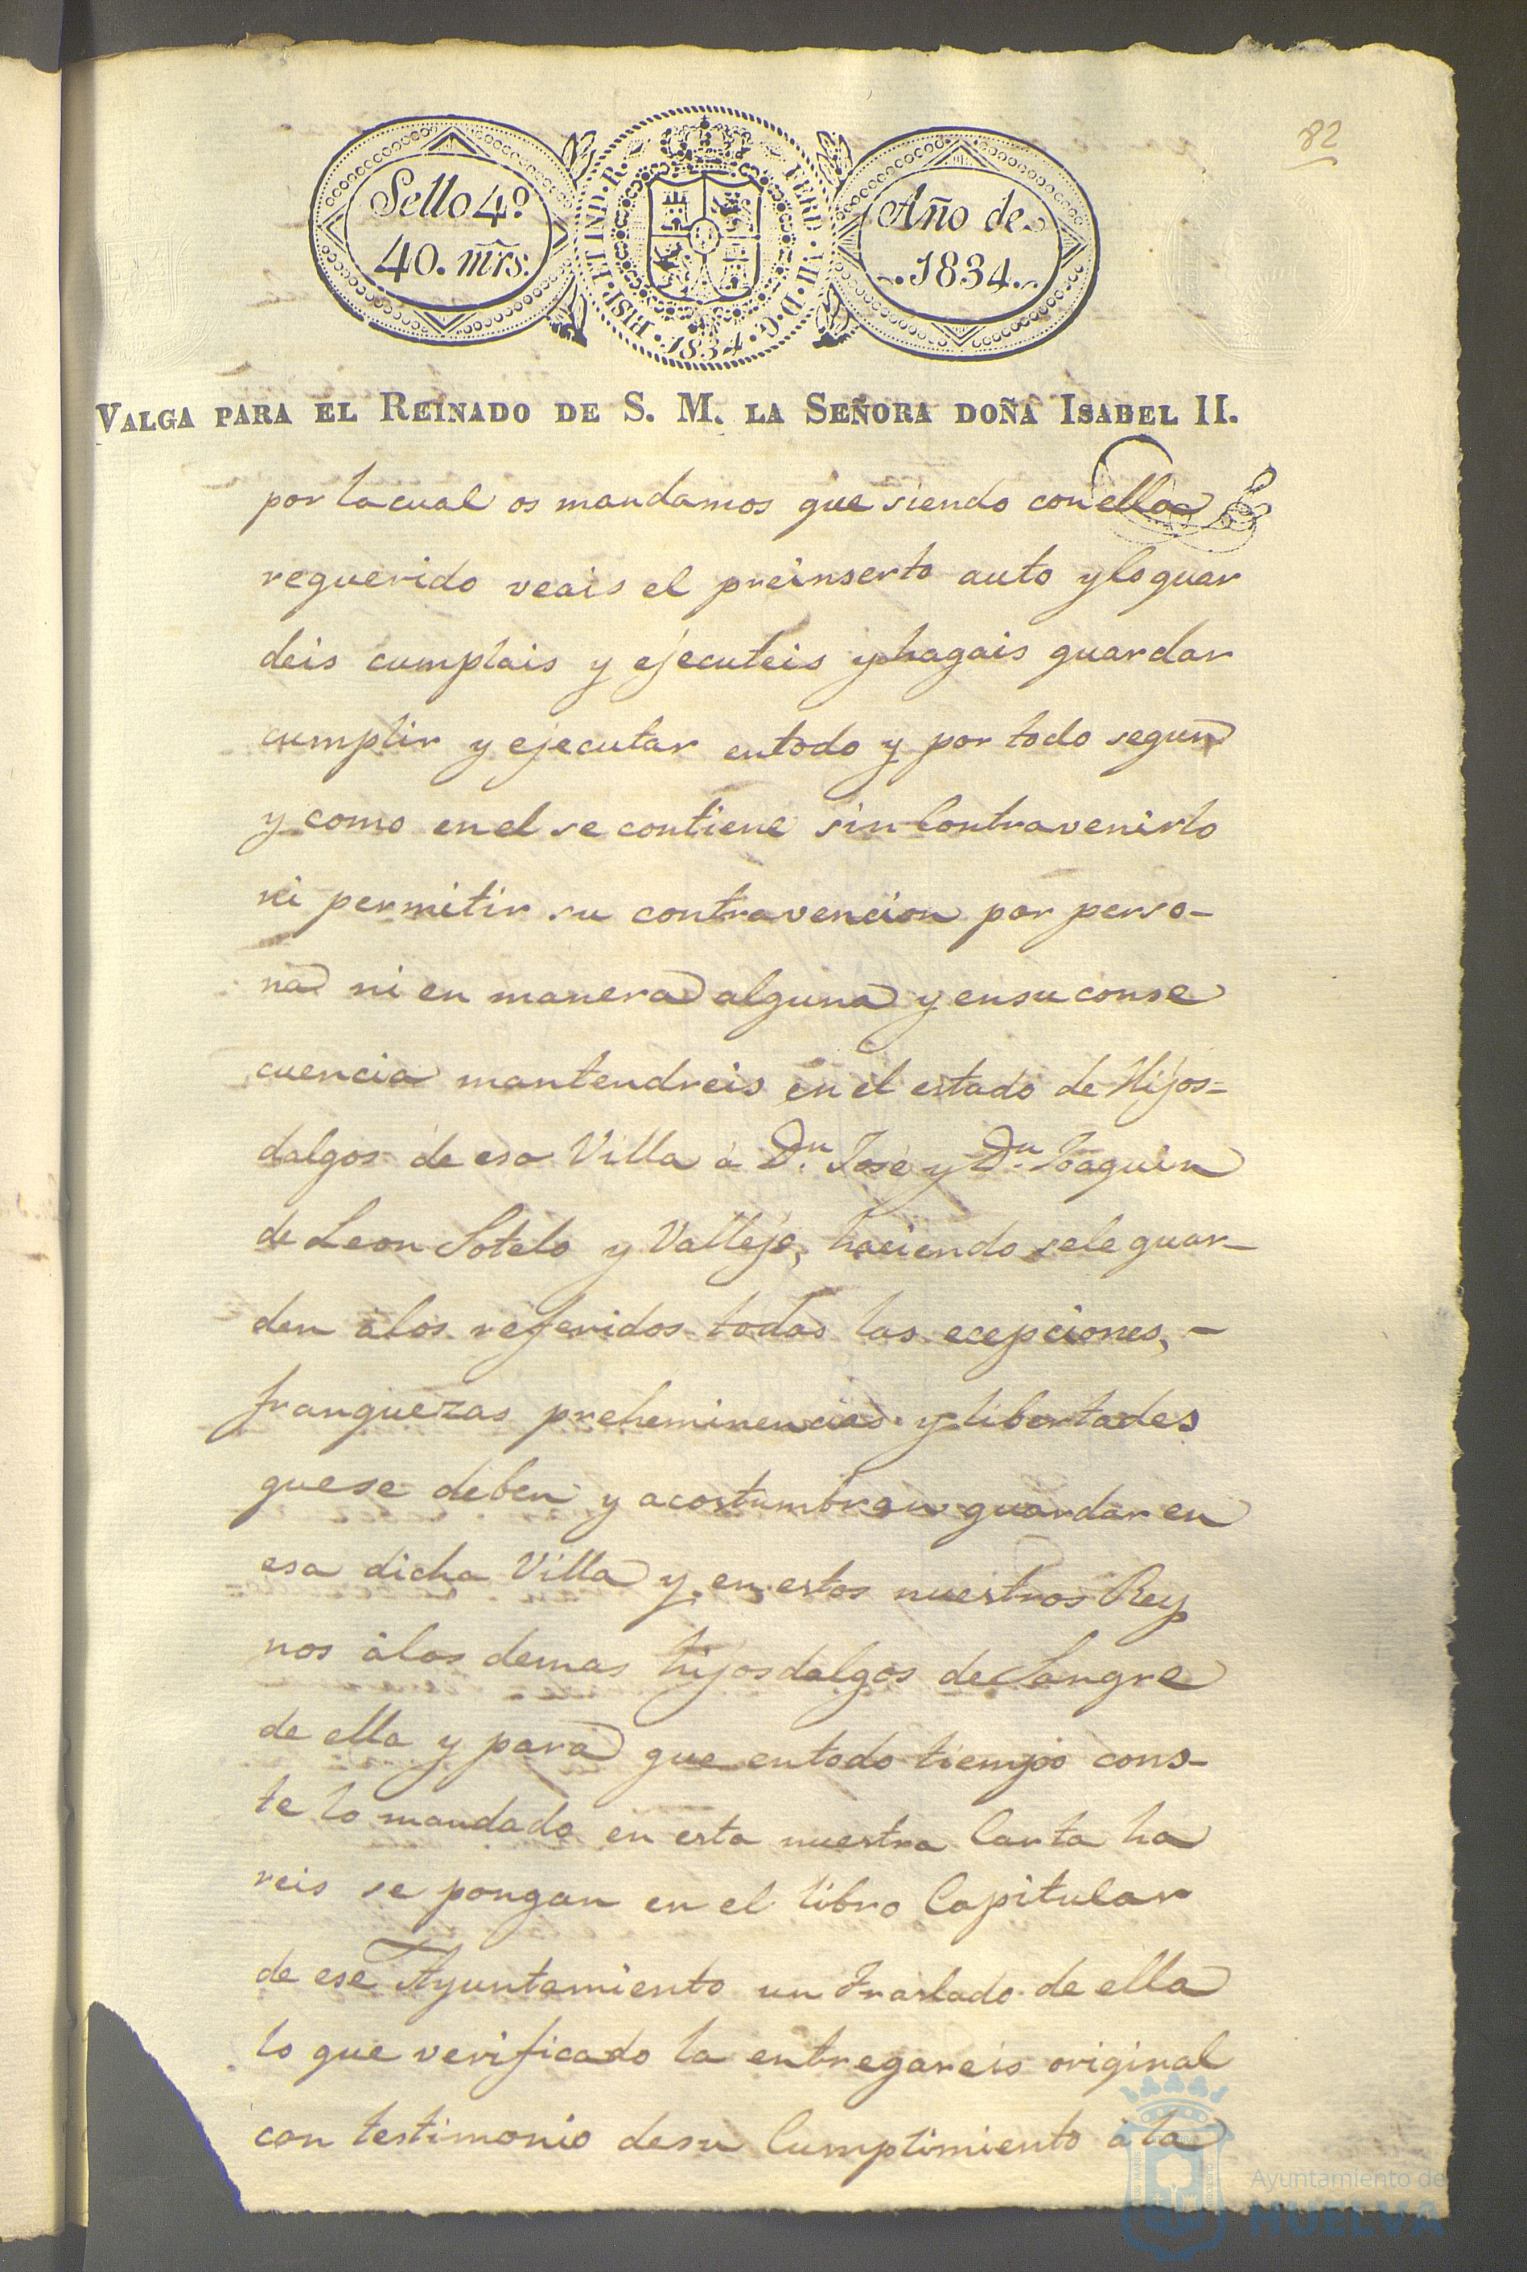 82
Sello 4º
40. mrs.
HISP. ET IND. R. FERD. VII. D. G. 1834.
Año de
1834.
VALGA PARA EL REINADO DE S. M. LA SEÑORA DOÑA ISABEL II.
por la cual os mandamos que siendo con ella
requerido veais el preinserto auto y lo guar
deis cumplais y ejecuteis y hagais guardar
cumplir y ejecutar en todo y por todo segun
y como en el se contiene sin Contravenirlo
ni permitir su contravencion por perso-
na ni en manera alguna y en su conse
cuencia mantendreis en el estado de Hijos=
dalgos de esa Villa á Dn. José y Dn. Joaquin
de Leon Sotelo y Vallejo, haciendo sele guar-
den á los referidos todas las ecepciones, -
franquezas preheminencias y libertades
que se deben y acostumbran guardar en
esa dicha Villa y en estos nuestros Rey
nos á los demas hijosdalgos de Sangre
de ella y para que en todo tiempo cons-
te lo mandado en esta nuestra Carta ha
reis se pongan en el libro Capitular
de ese Ayuntamiento un traslado de ella
lo que verificado la entregareis original
con testimonio de su Cumplimiento á la
Ayuntamiento de
HUELVA